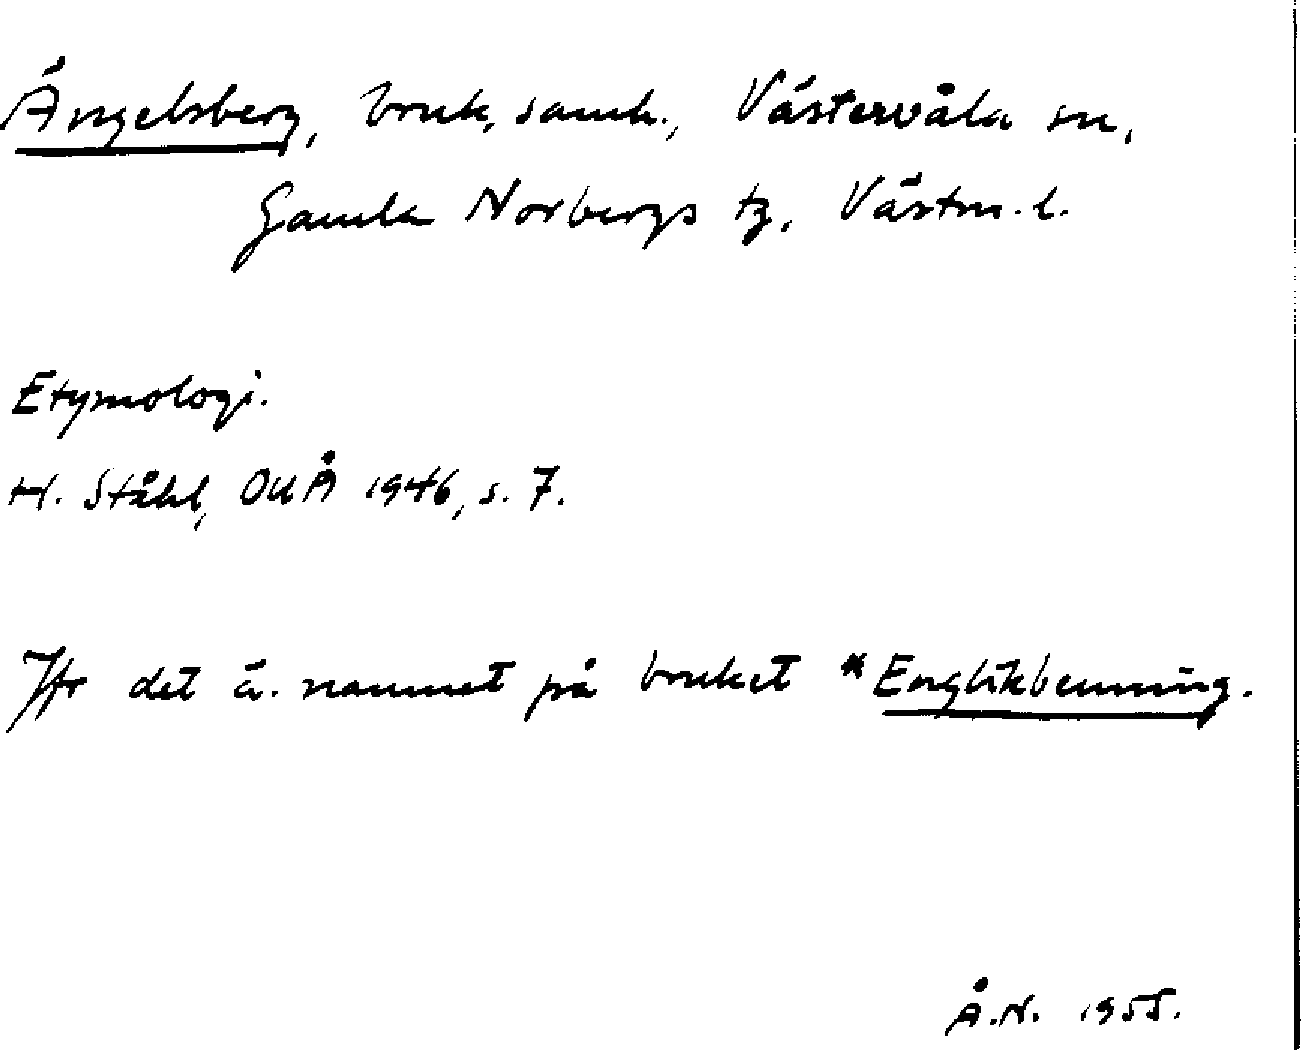 Ängelsberg, bruk, samh., Västervåla sn,
Gamla Norbergs tg, Västm. l.
Etymologi.
H. Ståhl, OUÅ 1946, s. 7.
Jfr det ä. namnet på bruket *Englikbenning.
Å.N. 1955.